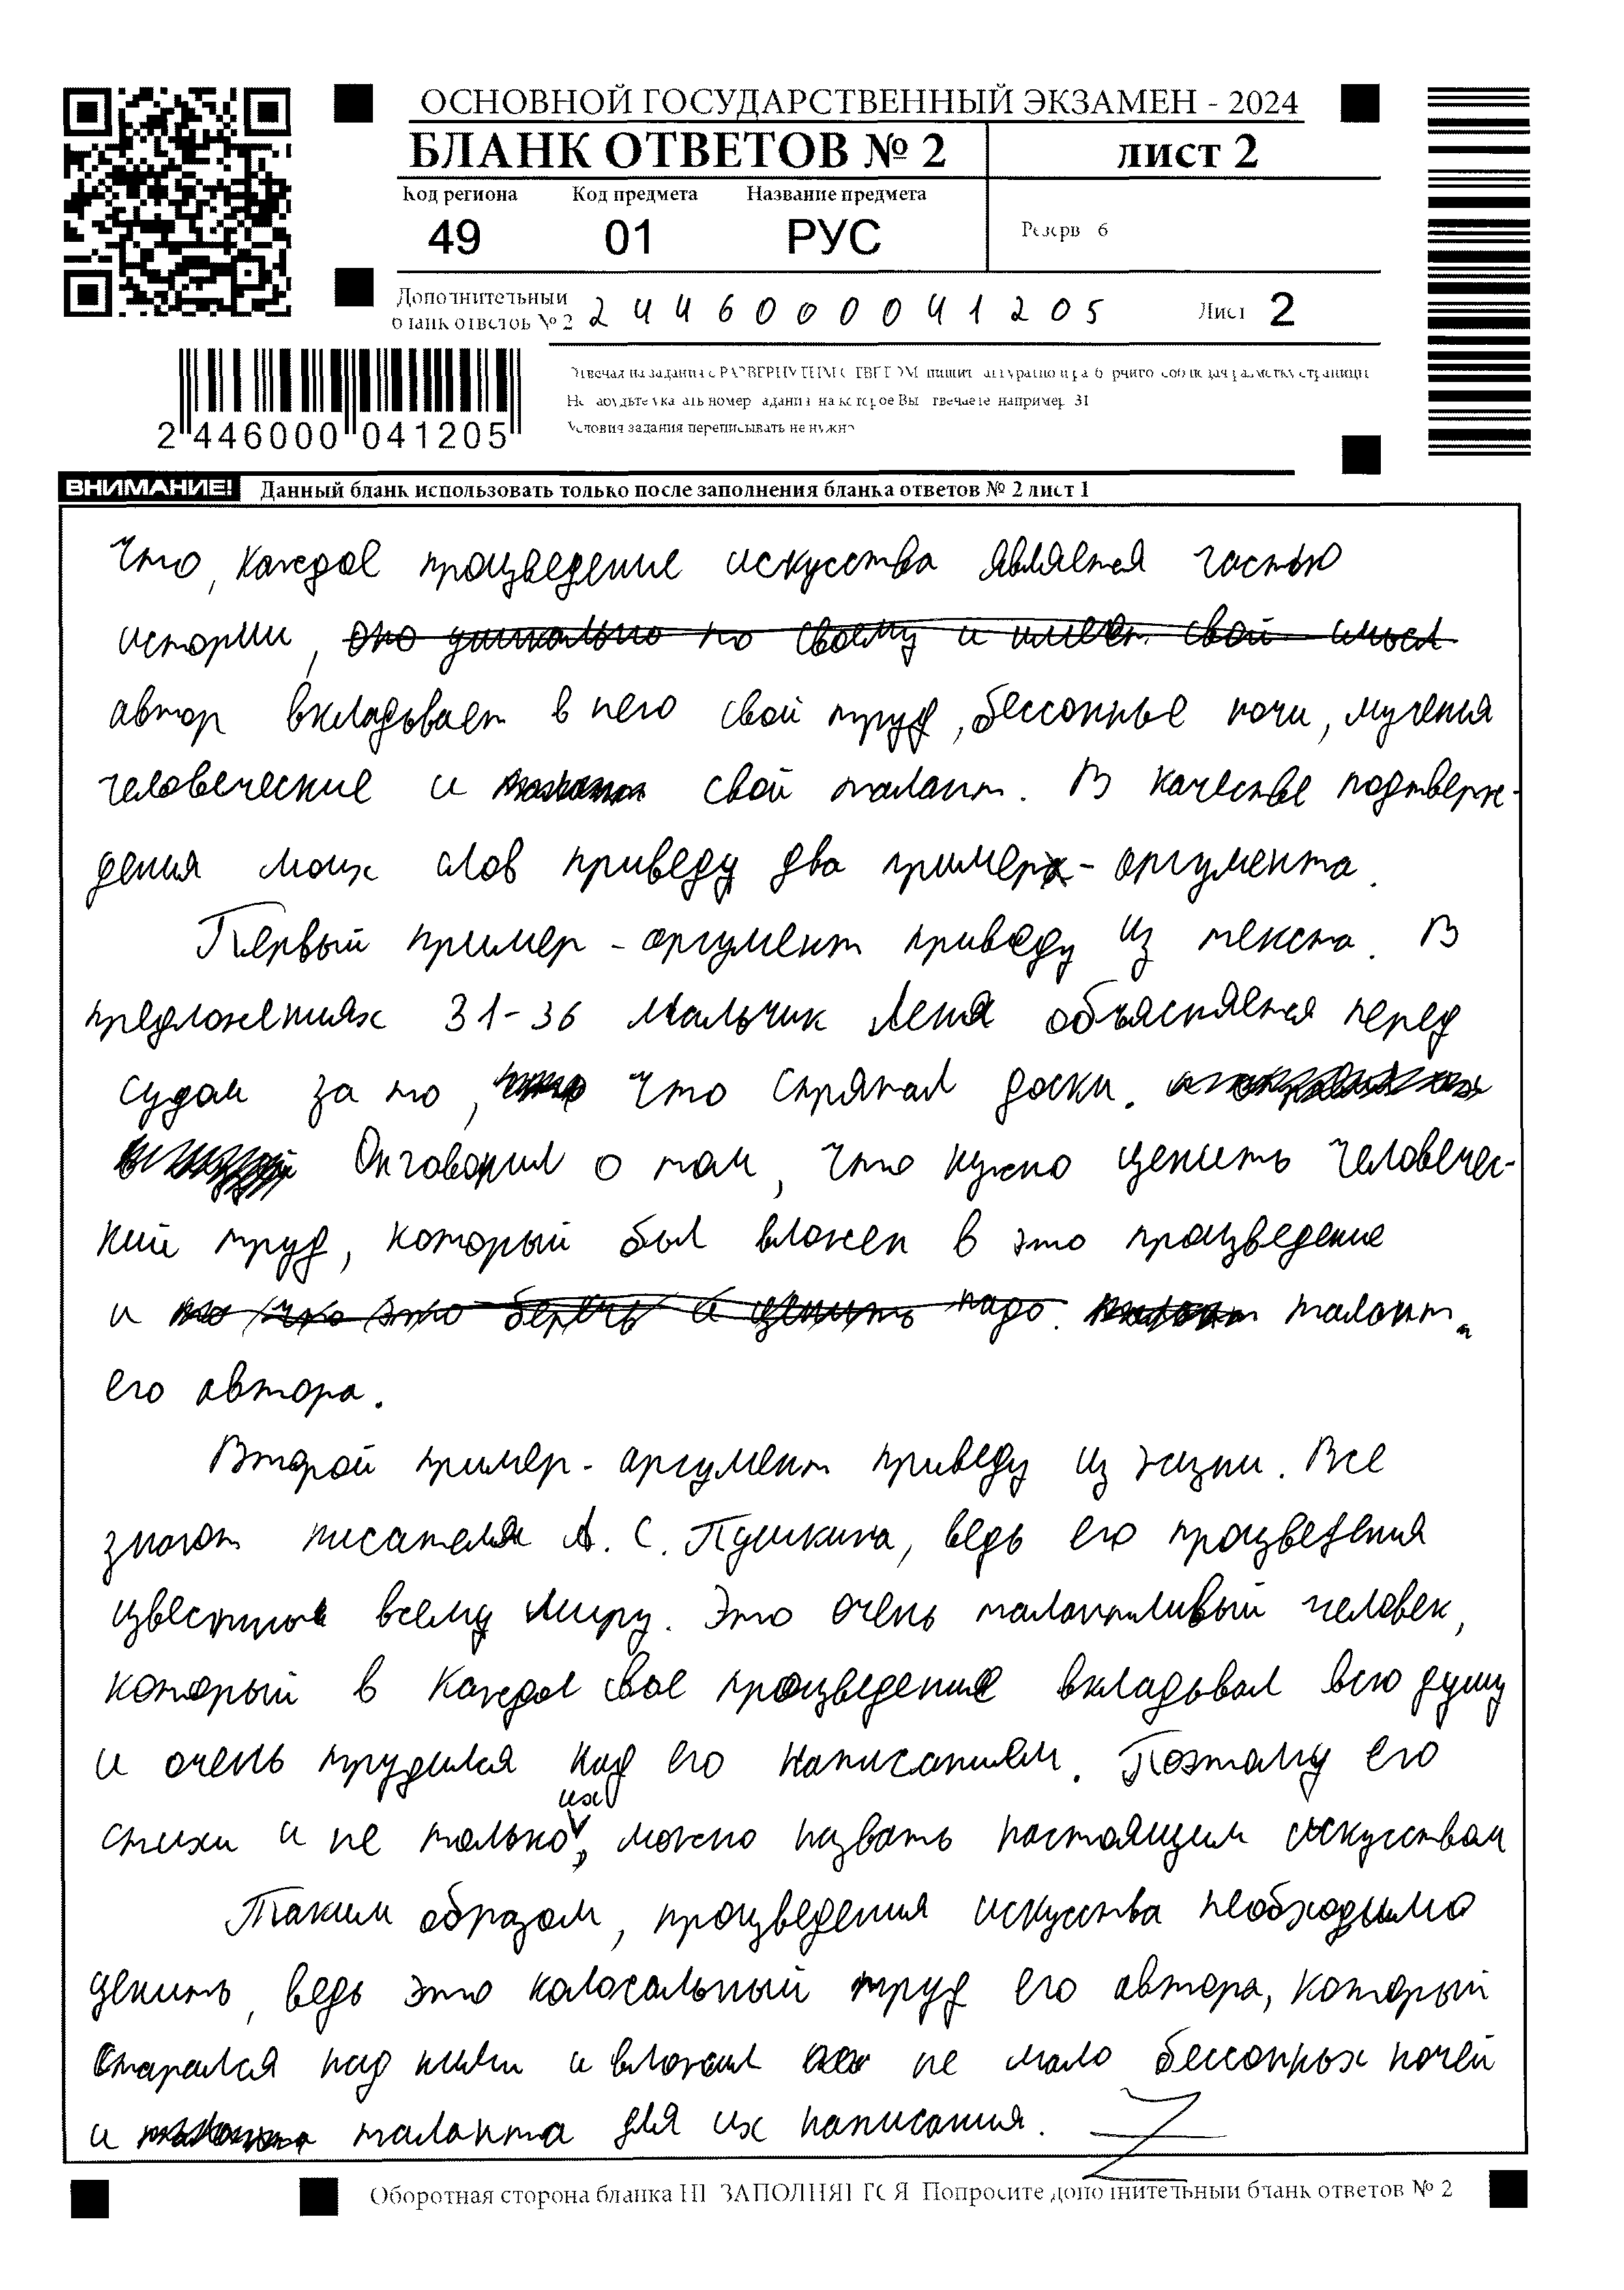 ОСНОВНОЙ ГОСУДАРСТВЕННЫЙ ЭКЗАМЕН - 2024
БЛАНК ОТВЕТОВ № 2 лист 2
Код региона Код предмета Название предмета
49 01 РУС Резерв 6
Дополнительный
бланк ответов № 2 2446000041205 Лист 2
Отвечая на задания с РАЗВЕРНУТЫМ ОТВЕТОМ, пишите аккуратно и разборчиво, соблюдая разметку страницы
Не забудьте указать номер задания, на которое Вы отвечаете, например, 31
Условия задания переписывать не нужно
2 446000 041205
ВНИМАНИЕ! Данный бланк использовать только после заполнения бланка ответов № 2 лист 1
что, каждое произведение искусства является частью
истории, оно уникально по своему и имеет свой смысл
автор вкладывает в него свой труд, бессонные ночи, мучения
человеческие и свой талант. В качестве подтверж-
дения моих слов приведу два пример - аргумента.
Первый пример - аргумент приведу из текста. В
предложениях 31-36 Мальчик Лёня объясняется перед
судом за то, что спрятал доски.
Он говорил о том, что нужно ценить человечес-
кий труд, который был вложен в это произведение
и то что это беречь и ценить надо. талант
его автора.
Второй пример - аргумент приведу из жизни. Все
знают писателя А. С. Пушкина, ведь его произведения
известны всему миру. Это очень талантливый человек,
который в каждое своё произведение вкладывал всю душу
и очень трудился над его написанием. Поэтому его
стихи и не только их, можно назвать настоящим искусством
Таким образом, произведения искусства необходимо
ценить, ведь это колосальный труд его автора, который
старался над ними и вложил не мало бессонных ночей
и таланта для их написания.
Оборотная сторона бланка НЕ ЗАПОЛНЯЕТСЯ. Попросите дополнительный бланк ответов № 2